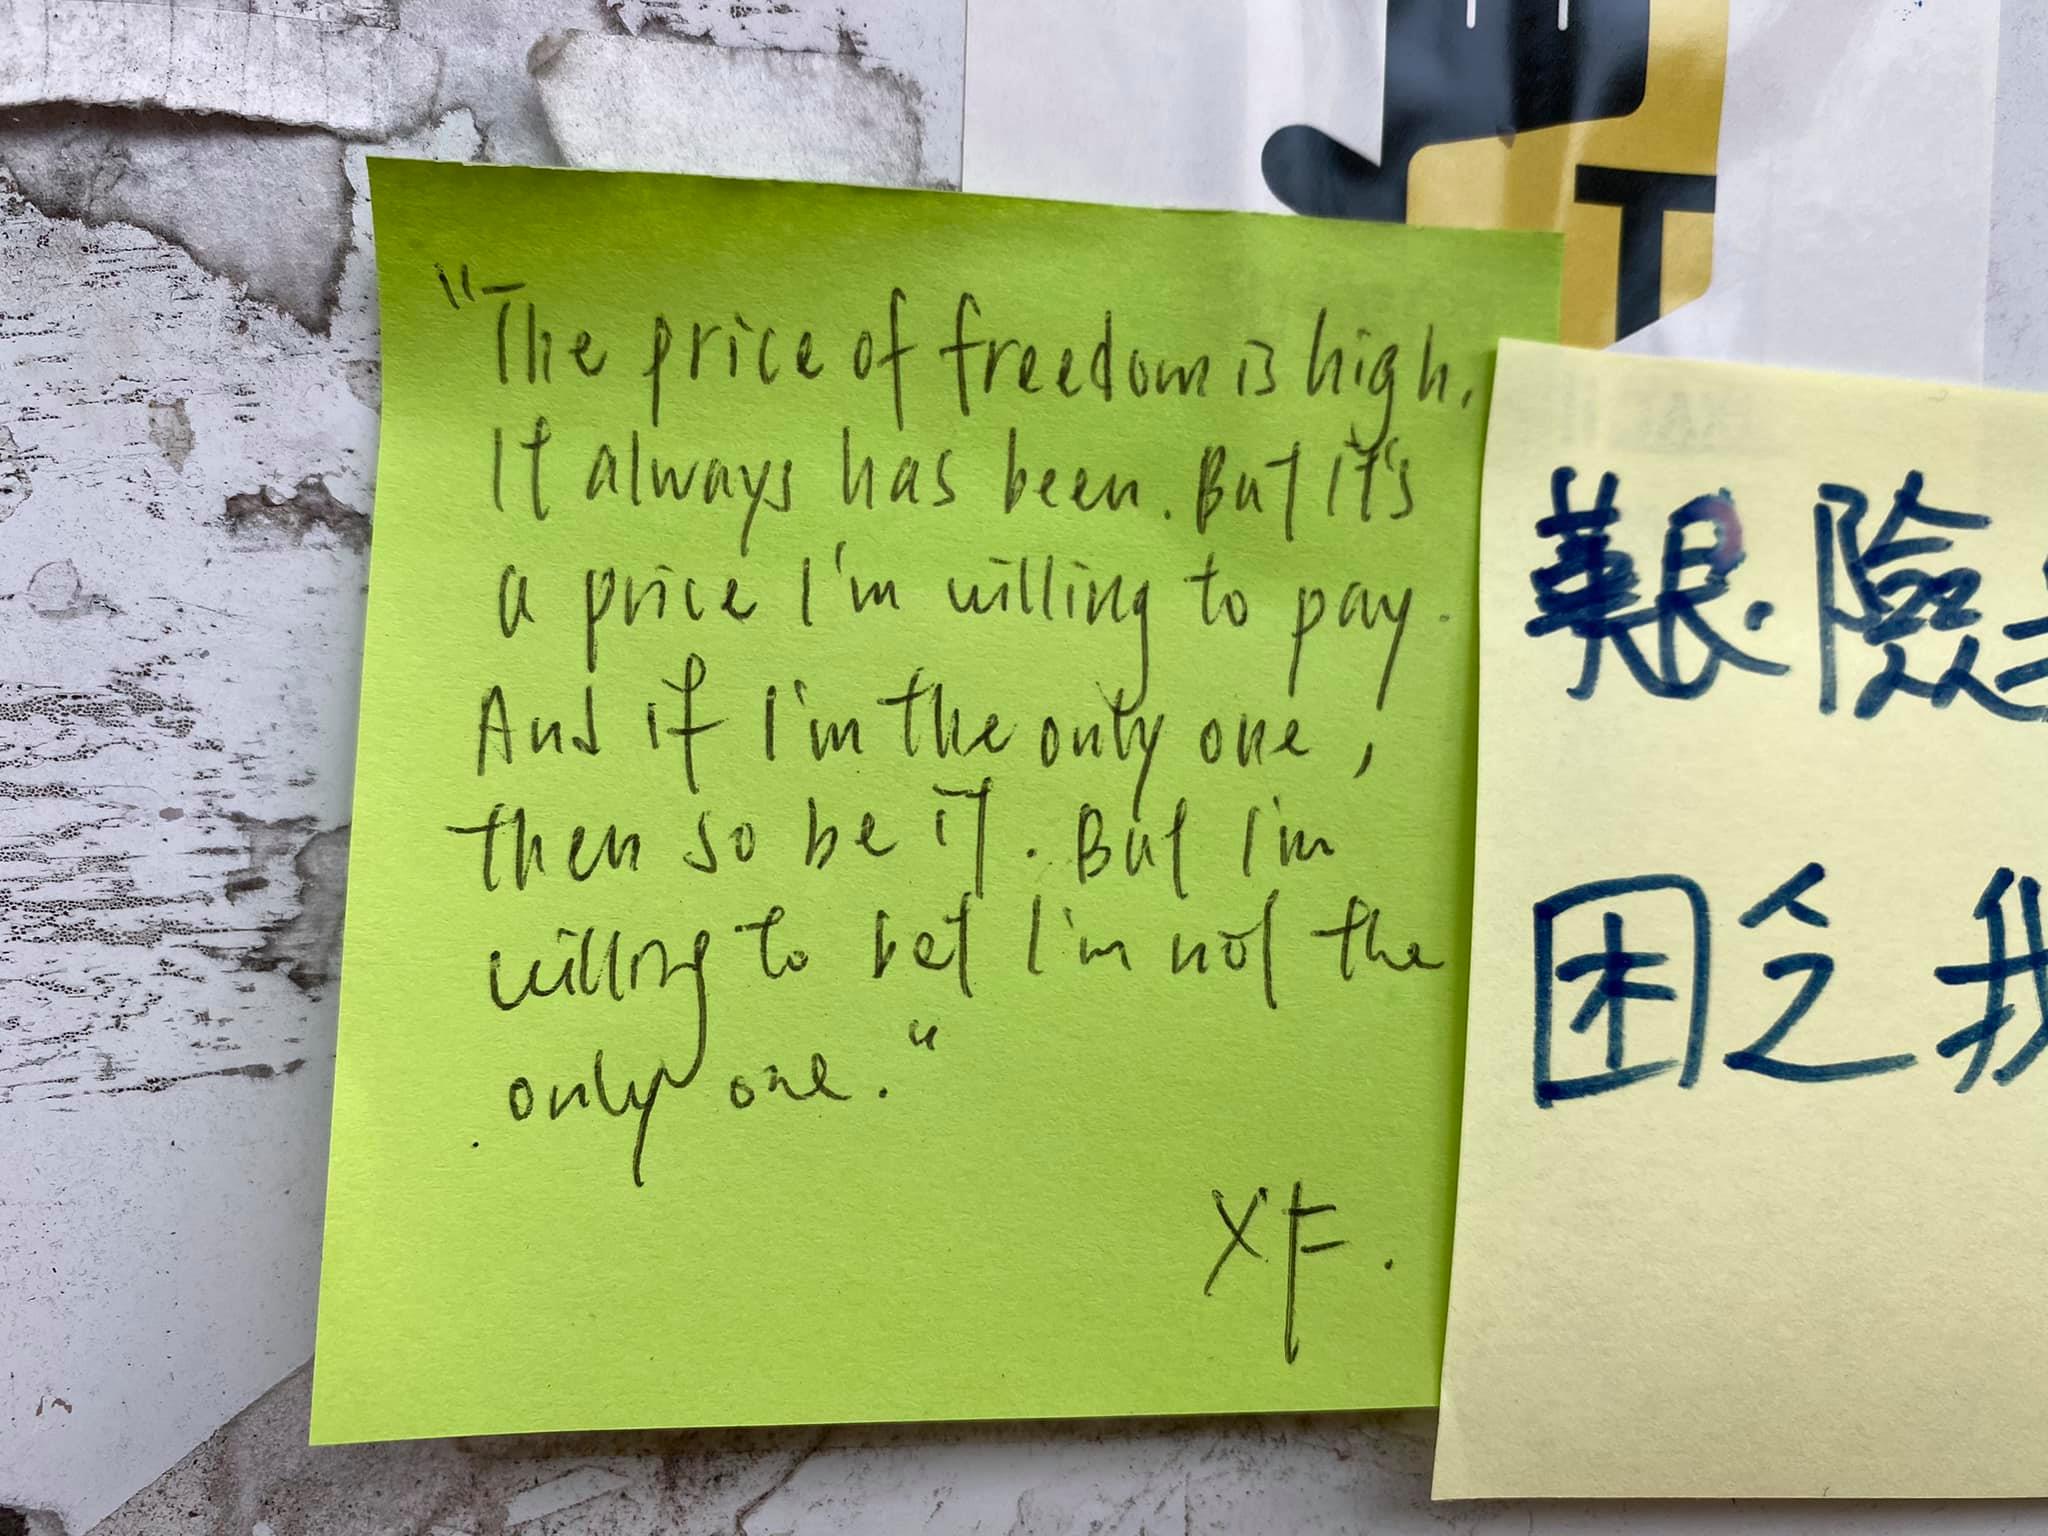 "The price of freedom is high.
It always has been. But it's
a price I'm willing to pay.
And if I'm the only one,
then so be it. But I'm
willing to bet I'm not the
only one."
XF.
艱險
困乏我